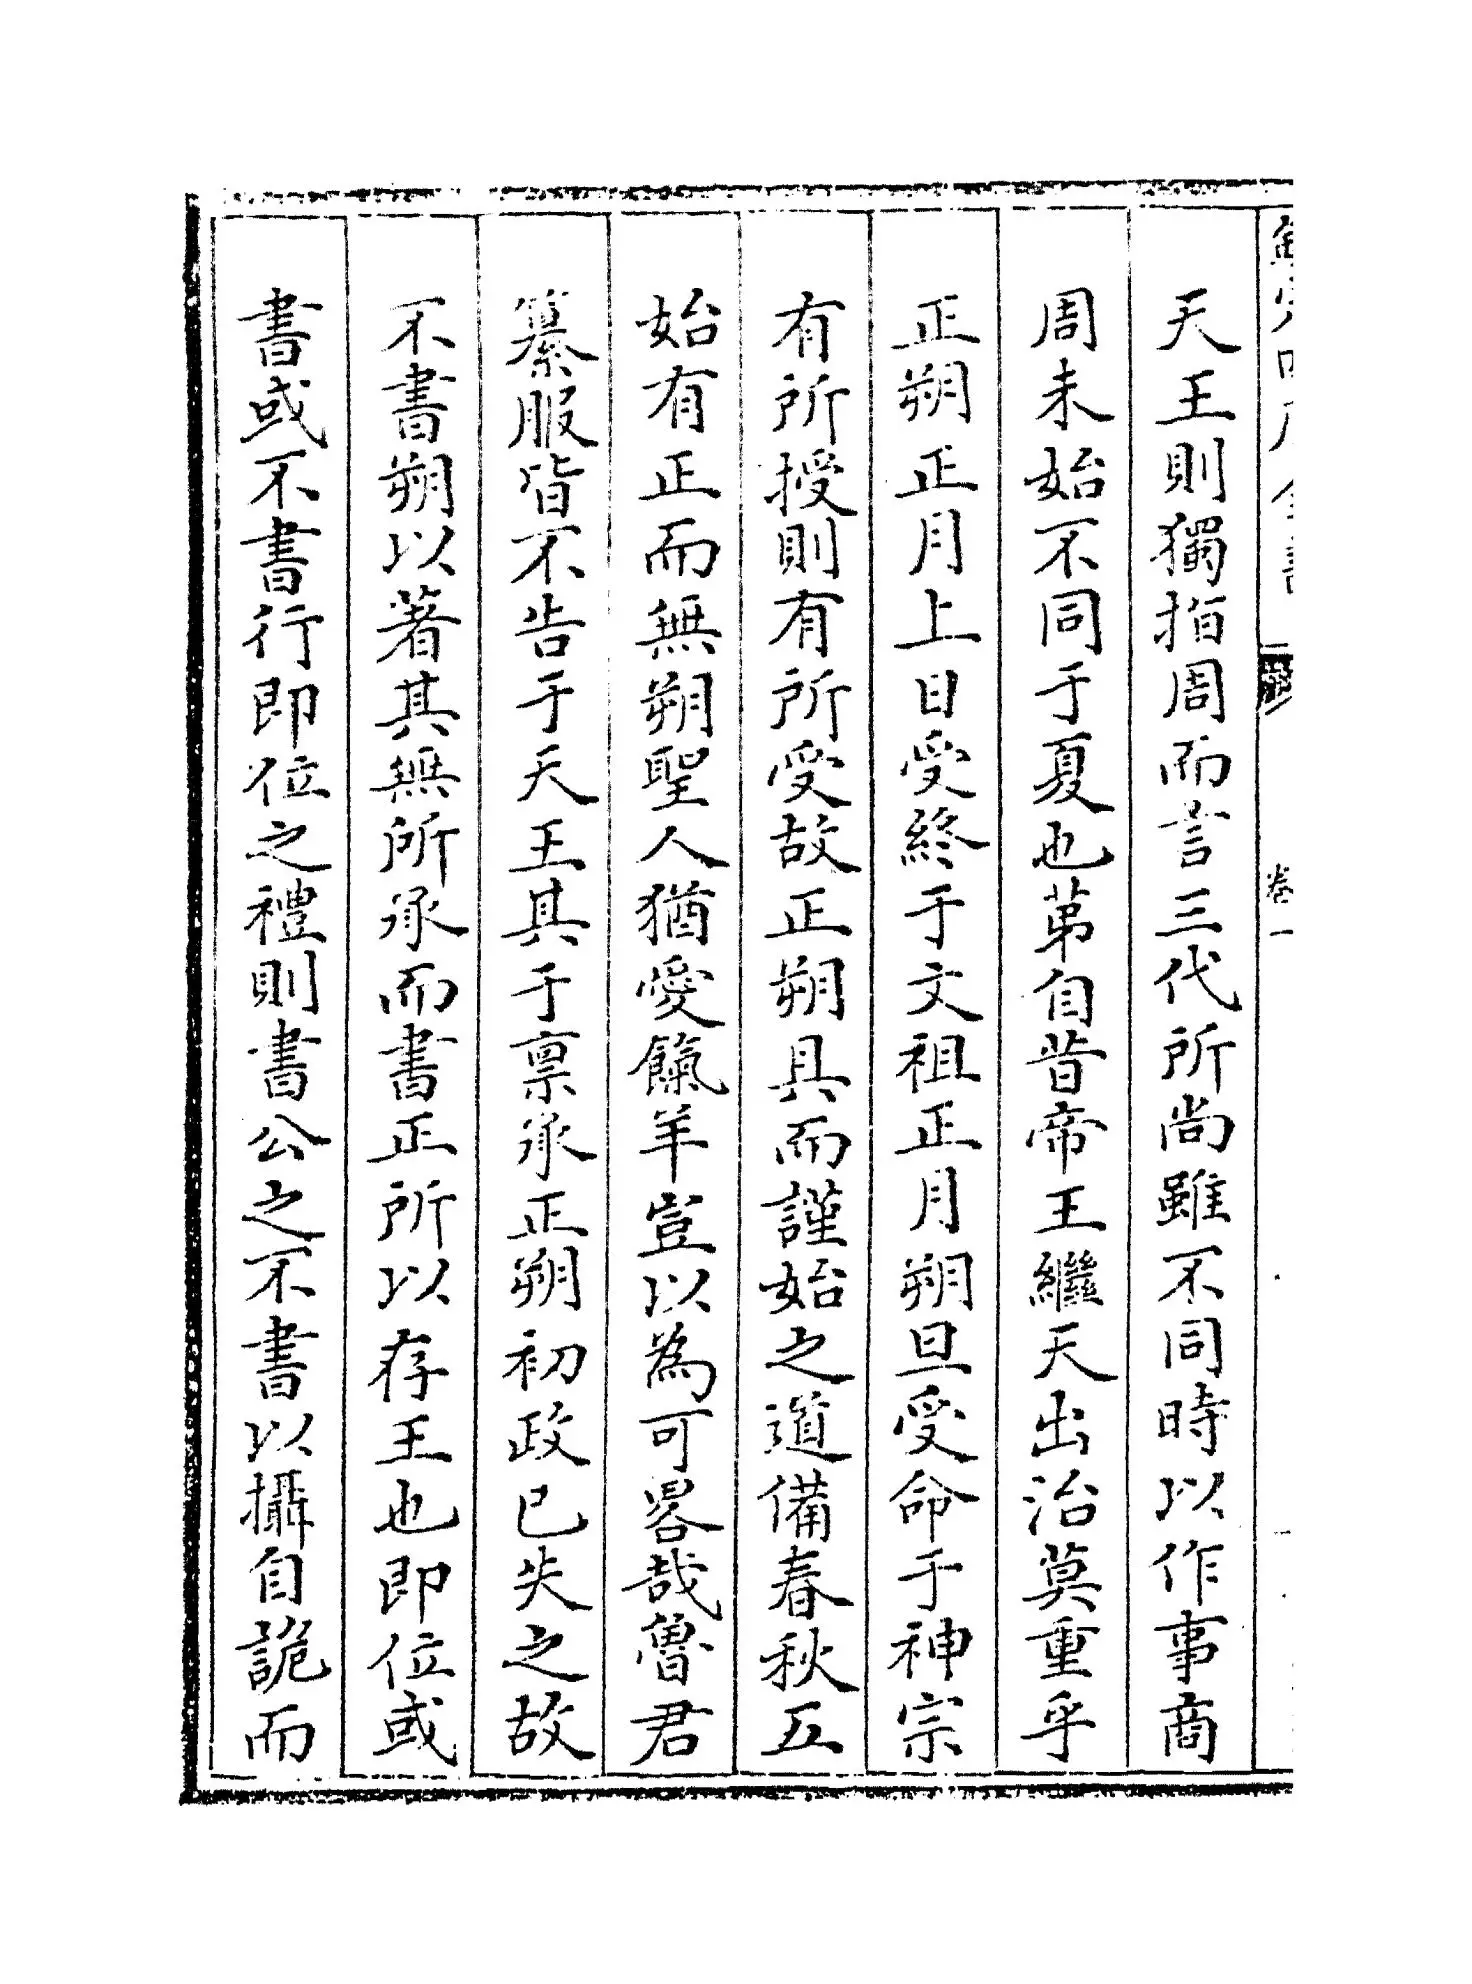 欽定四庫全書
卷一
天王則獨指周而言三代所尚雖不同時以作事商
周未始不同于夏也苐自昔帝王繼天出治莫重乎
正朔正月上日受終于文祖正月朔旦受命于神宗
有所授則有所受故正朔具而謹始之道備春秋五
始有正而無朔聖人猶愛餼羊豈以為可畧哉魯君
纂服皆不告于天王其于禀承正朔初政已失之故
不書朔以著其無所承而書正所以存王也即位或
書或不書行即位之禮則書公之不書以攝自詭而